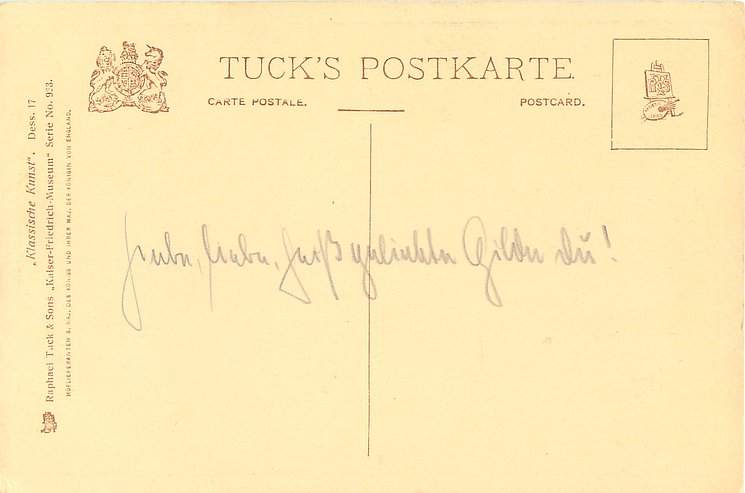 TUCK'S POSTKARTE.
CARTE POSTALE. POSTCARD.
„Klassische Kunst“. Dess. 17
Raphael Tuck & Sons „Kaiser-Friedrich-Museum“ Serie No. 923.
HOFLIEFERANTEN S. MAJ. DES KÖNIGS UND IHRER MAJ. DER KÖNIGIN VON ENGLAND.
Liebe, liebe, heiß geliebte Gilde du!